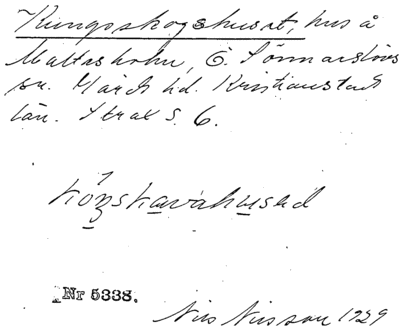 Kungsskogshuset, hus å
Maltesholm, Ö. Sönnarslövs
sn. Gärds hd. Kristianstads
län. Strax S. 6.
kǫ́ŋskavahused
Nr 5338.
Nils Nilsson 1929